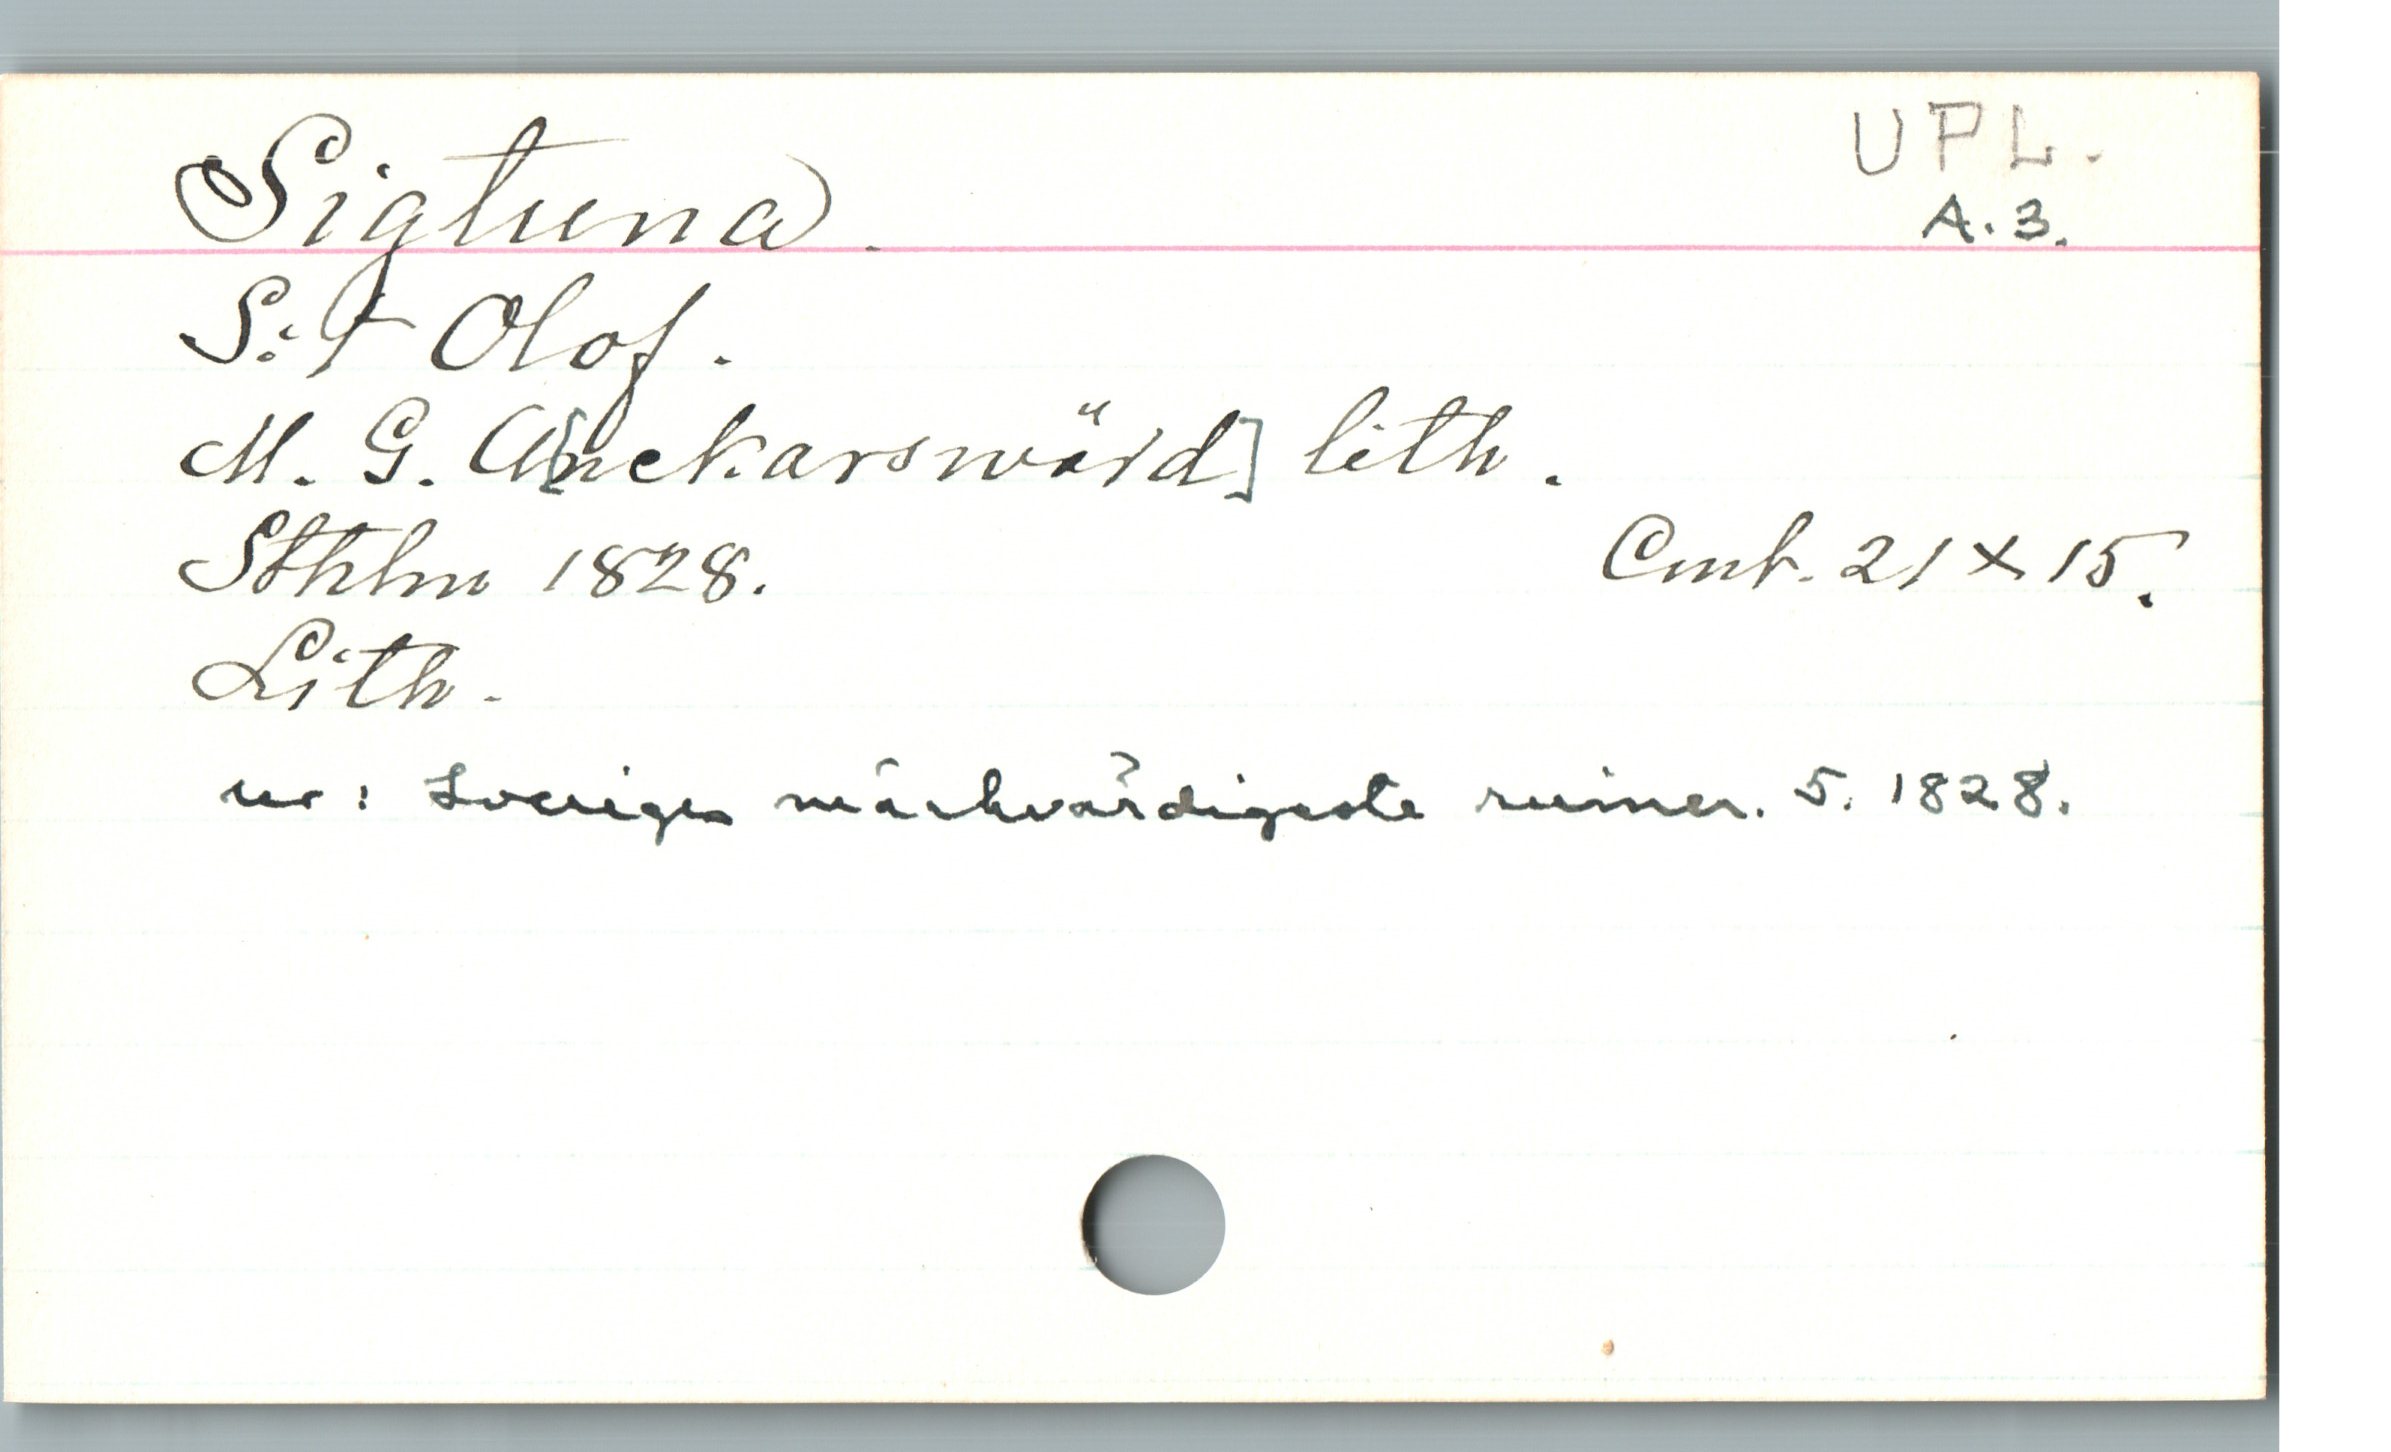 Sigtuna.
UPL.
A. 3.
S:t Olof.
M. G. A[nckarswärd] lith.
Sthlm 1828.
Cmt. 21 x 15.
Lith.
ur: Sveriges märkvärdigaste ruiner. 5. 1828.